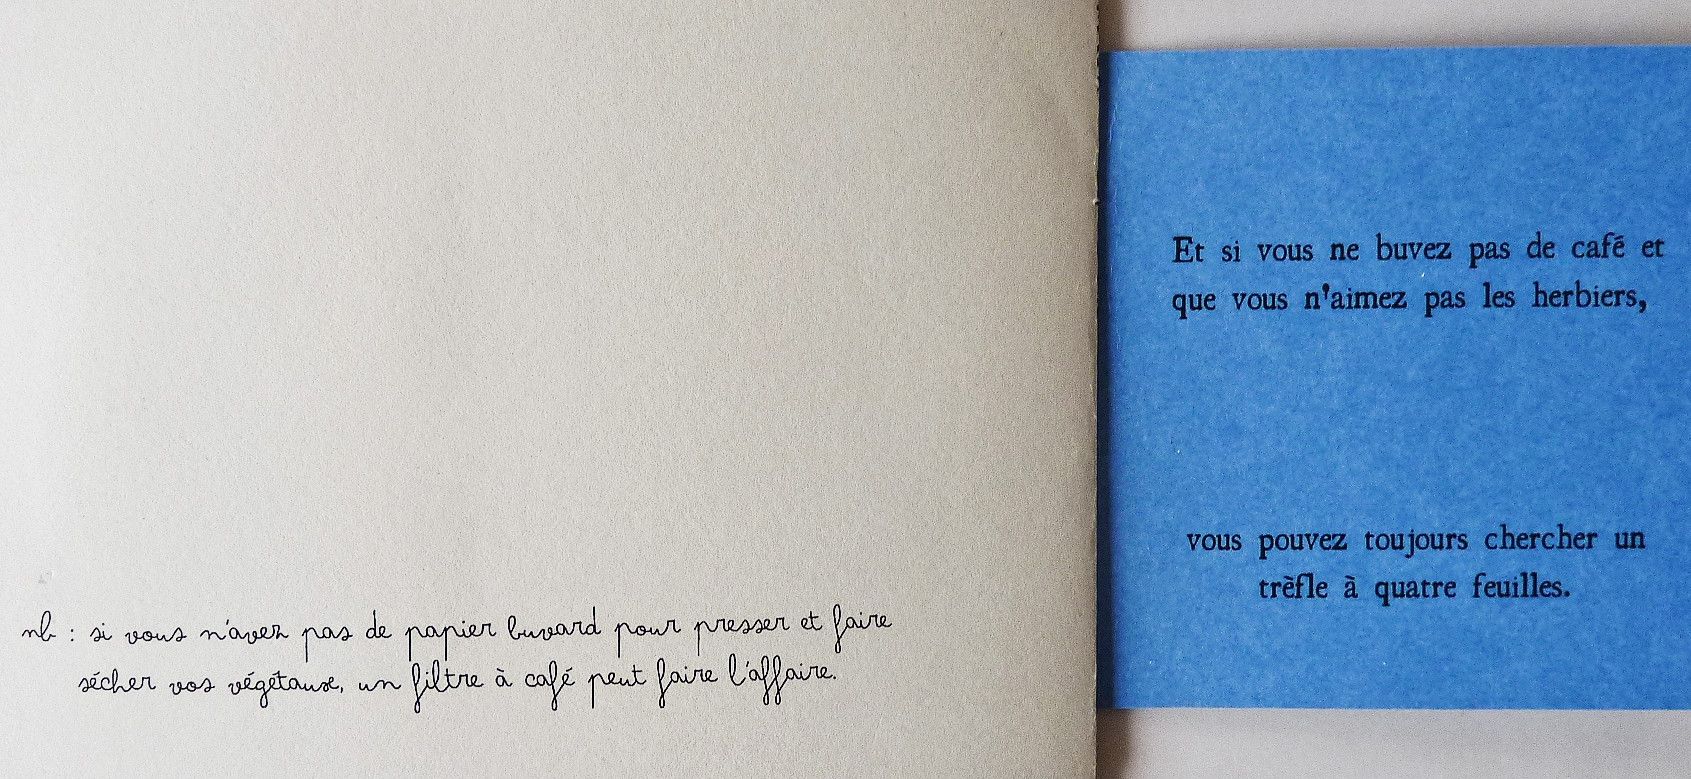 nb : si vous n'avez pas de papier buvard pour presser et faire
sécher vos végétaux, un filtre à café peut faire l'affaire.
Et si vous ne buvez pas de café et
que vous n'aimez pas les herbiers,
vous pouvez toujours chercher un
trèfle à quatre feuilles.